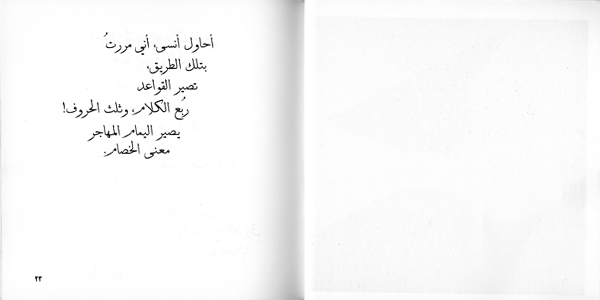 أحاول أنسى، أني مررتُ
بتلك الطريق،
تصير القواعد
ربُع الكلام، وثلث الحروف!
يصير اليمام المهاجر
معنى الخصام.
٢٢